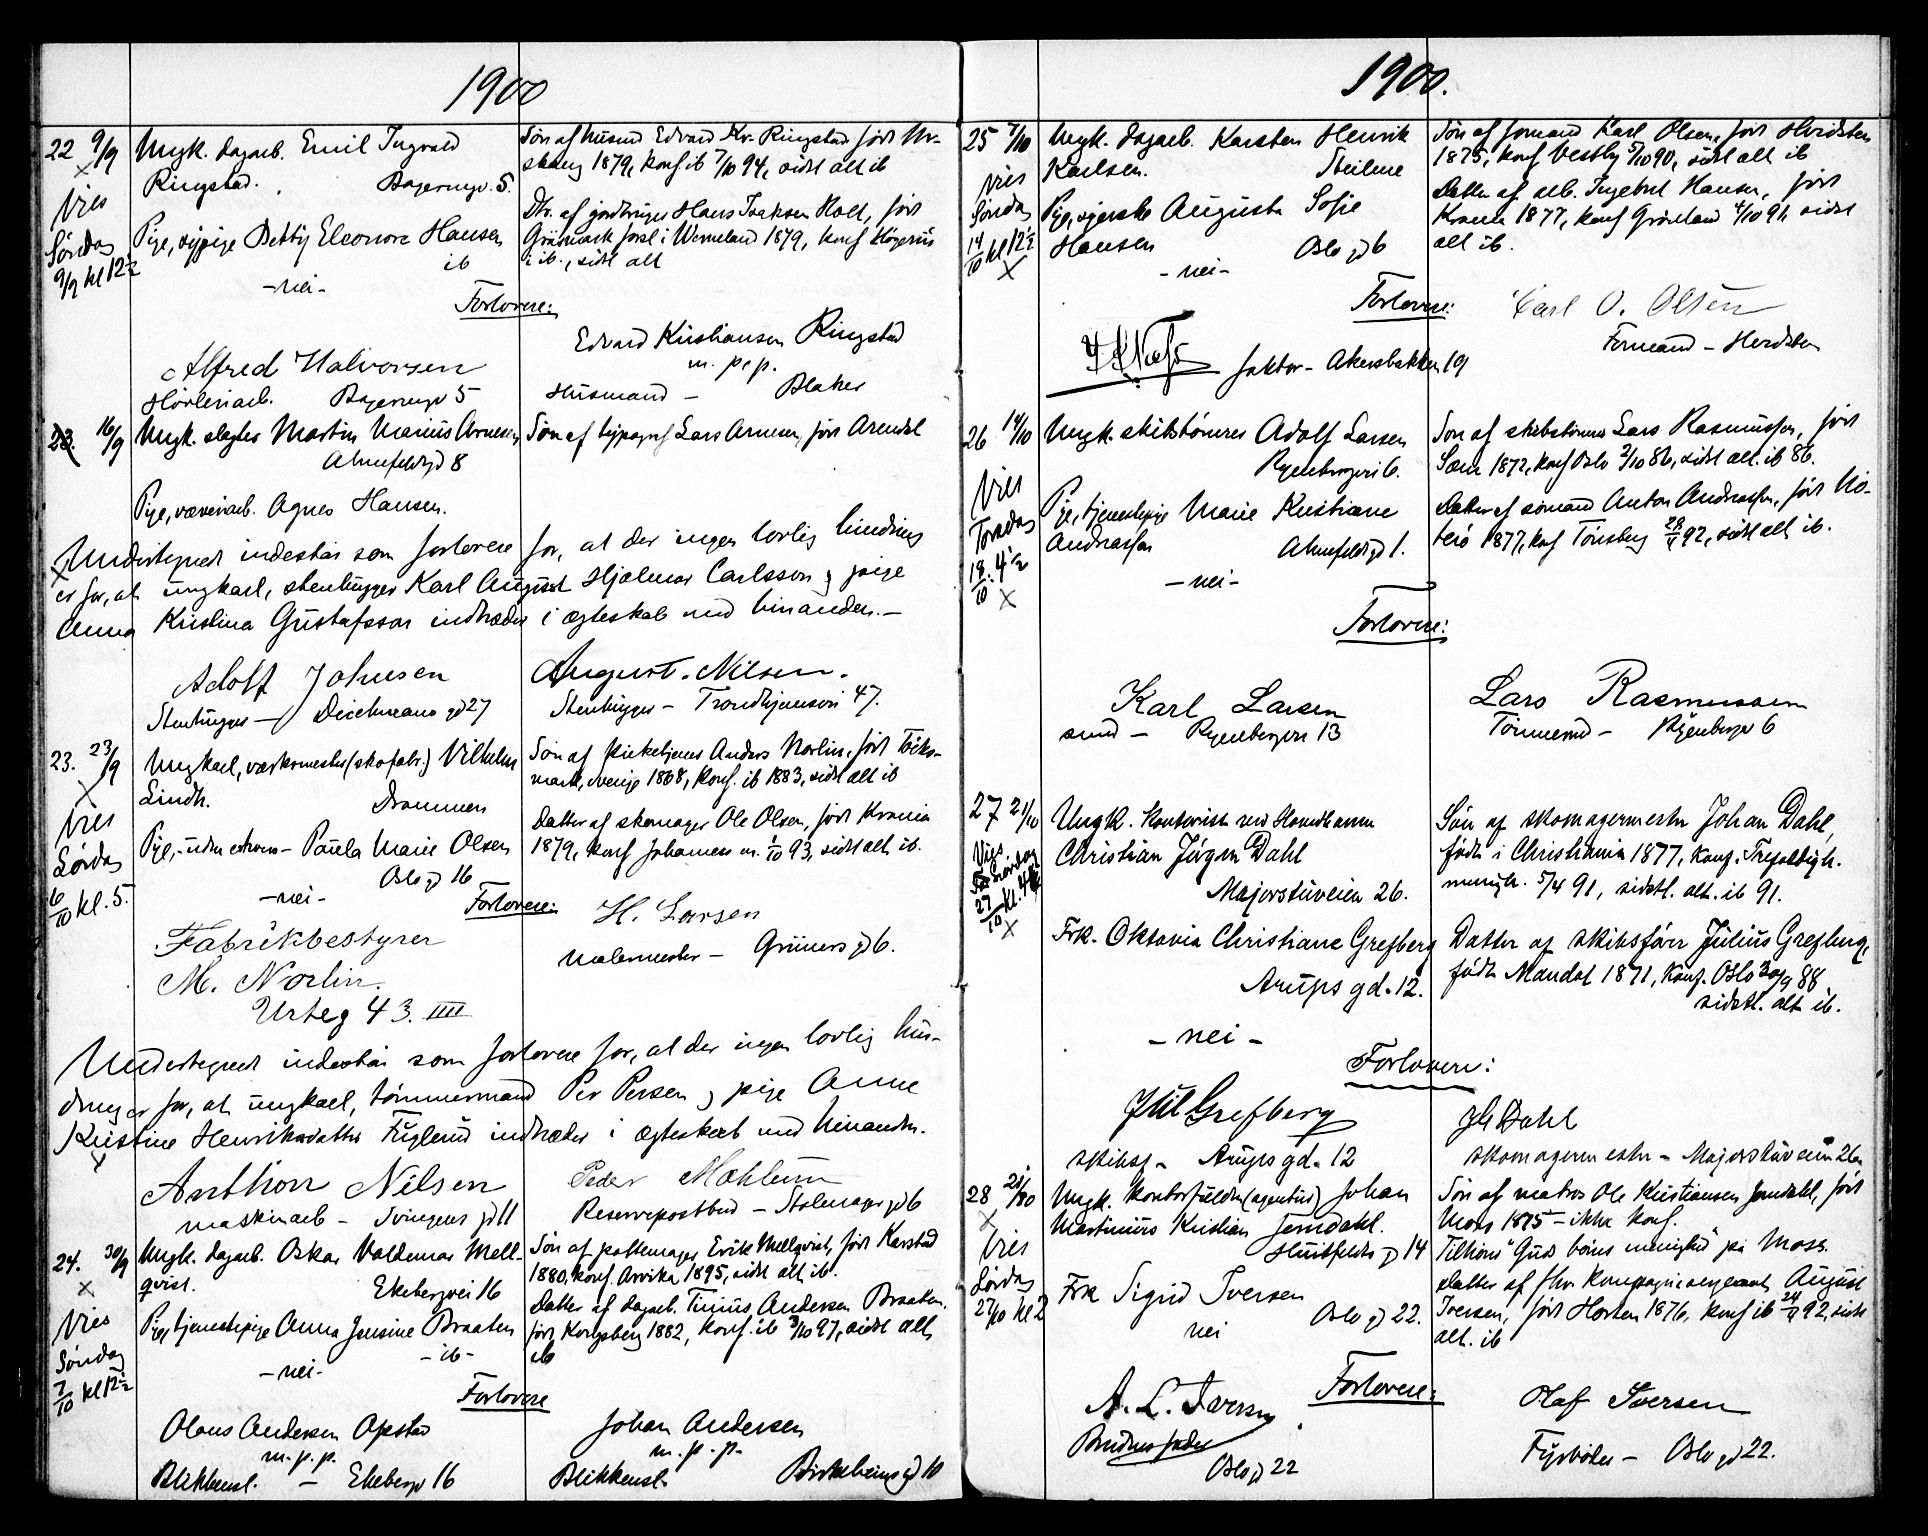 1900
22 9/9 Ungk. dagarb. Emil Ingvald
Ringstad. Bøgerupv. 5.
Søn af husmd Edvard Kr. Ringstad født Ur-
skoug 1879, konf. ib 7/10 94, sidst alt ib
Vies
Søndag
9/9 kl 12½
Pige, sypige Betty Eleonore Hansen
ib
Dtr. af gordbruger Hans Isaksen Holt, født
Gräsmark forsl i Wermeland 1879, konf
i ib., sidst alt
-nei-
Forlovere:
Edvard Kristiansen Ringstad
m. p. p.
Husmand - Blaker
Alfred Halvorsen
Høvleriarb. 5
23. 16/9 Ungk. slagter Martin Marius Arnesen
Ahnefeldtgd 8
Søn af typograf Lars Arnesen, født Arendal
Pige, væveriarb. Agnes Hansen.
Undertegnet indestår som forlovere for, at der ingen lovlig hindring
er for, at ungkarl, stenhugger Karl August Hjalmar Carlsson og pige
Anna Kristina Gustafsson indtræder i ægteskab med hinanden.-
Adolf Johnsen
Stenhugger - 27
August. Nilsen.
Stenhugger - Trondhjemsvei 47.
23. 23/9 Ungkarl, værksmester (skofabr.) Vilhelm
Lindh. Drammen
Søn af kirketjener Anders Norlin, født Töks-
mark, sverige 1868, konf. ib 1883, sidst alt ib
X
Vies
Lørdag
6/10 kl. 5.
Pige, - uden erhverv - Paula Marie Olsen
Oslogd 16
Datter af skomager Ole Olsen, født Krania
1879, konf Johannes m. 1/10 93, sidst alt ib.
-nei-
Forlovere:
Fabrikbestyrer
M. Norlin.
Urteg 43. IIII
H. Larsen
Malermester - Grünersgd 6.
Undertegnet indestår som forlovere for, at der ingen lovlig hin-
dring er for, at ungkarl, tømmermand Per Persen og pige Anne
Kristine Henriksdatter Fuglerud indtræder i ægteskab med hinanden.
Anthon Nilsen
maskinarb - Svingens gd 11
Peder Mæhlum
Reservepostbud - Stolmagergd 6
24. 30/9 Ungk. dagarb. Oskar Valdemar Mell-
qvist. Ekebergvei 16
Søn af pottemager Erik Mellqvist, født Karstad
1880, konf. Arvika 1895, sidst alt ib.
X
Vies
Søndag
7/10 kl 12½
Pige, tjenestepige Anna Jensine Braaten
-ib-
Datter af dagarb. Tinius Andersen Braaten.
født Kongsberg 1882, konf. ib 3/10 97, sidst alt
ib
-nei-
Forlovere
Olaus Andersen Opstad
m. p. p.
Blikkensl. - Ekebergv 16
Johan Andersen
m. p. p.
Blikkensl. gd 10
1900.
25 7/10 Ungk. dagarb. Karsten Henrik
Karlsen. Steilene
Søn af formand Karl Olsen, født Hvidsten
1875, konf Vestby 5/10 90, sidst alt ib
Vies
Søndag
14/10 kl 12½
X
Pige, syerske Augusta Sofie
Hansen Oslo gd 6
Datter af arb. Ingebret Hansen, født
Krania 1877, konf Grønland 4/10 91 sidst
alt ib.
-nei-
Forlovere:
faktor - Akersbakken 19
Carl O. Olsen
Formand - Hvidsten
26 14/10 Ungk. skibstømrer Adolf Larsen
Ryenbergvei 6.
Søn af skibstømrer Lars Rasmussen, født
Sem 1872, konf Oslo 3/10 86, sidst alt. ib 86.
Vies
Torsdag
18/10. 4½
X
Pige, tjenestepige Marie Kristiane
Andreassen Ahnefeldtgd 1.
Datter af sømand Anton Andreassen, født Nø-
terø 1877, konf Tönsberg 92, sidst alt ib.
-nei-
Forlovere:
Karl Larsen
smed - Ryenbergvn 13
Lars Rasmussen
Tømmermd - Ryenbergv 6
27 21/10 Ungk. Kontorist ved Homdhavnn
Christian Jörgen Dahl
Majorstuveien 26.
Søn af skomagermester Johan Dahl,
født i Christiania 1877, konf. Trefoldigh.
menigh. 5/4 91, sidstl. alt. ib 91.
Vies
Lørdag
27/10 kl. 4½
X
Frk. Oktavia Christiane Grefberg
Arups gd. 12.
Datter af skibsfører Julius Grefberg,
født Mandal 1871, konf. Oslo 30/9 88
sidstl. alt ib.
-nei-
Forlovere:
Jul Grefberg
skibsf - Arups gd. 12
Jh Dahl
skomagermester - Majorstuveien 26
28 21/10 Ungk. kontorfuldm (agentur) Johan
Martinius Kristian Jemdahl.
Huitfeldts gd 14
Søn af matros Ole Kristiansen Jemdahl, født
Moss 1875 - ikke konf.
Tilhører "Guds børns menighed" på Moss.
X
Vies
Lørdag
27/10 kl 2
Frk Sigrid Iversen
Oslo gd 22.
Datter af fhv. kompagnisergeant August
Iversen, født Horten 1876, konf ib 92, sidst
alt. ib
nei
Forlovere:
A. L. Iversen
Brudens fader
Oslo gd 22
Olaf Iversen
Fyrbøder - Oslo gd 22.